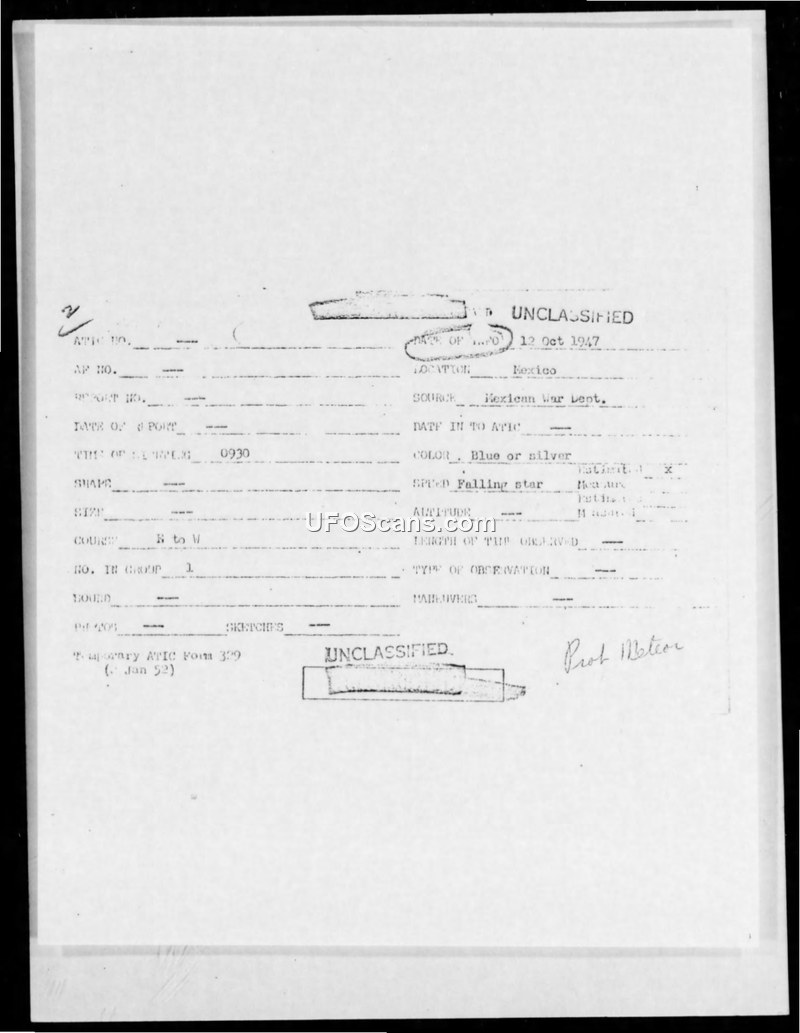 2
UNCLASSIFIED
ATIC NO. --- DATE OF INFO 12 Oct 1947
AF NO. --- LOCATION Mexico
REPORT NO. --- SOURCE Mexican War Dept.
DATE OF REPORT --- DATE IN TO ATIC ---
TIME OF SIGHTING 0930 COLOR . Blue or silver
Estimated x
SHAPE --- SPEED Falling star Measure
SIZE --- ALTITUDE --- Measured
COURSE N to W LENGTH OF TIME OBSERVED ---
UFOScans.com
NO. IN GROUP 1 TYPE OF OBSERVATION ---
SOUND --- MANEUVERS ---
PHOTOS --- SKETCHES ---
Temporary ATIC Form 329 UNCLASSIFIED
Jan 52)
Prob Meteor